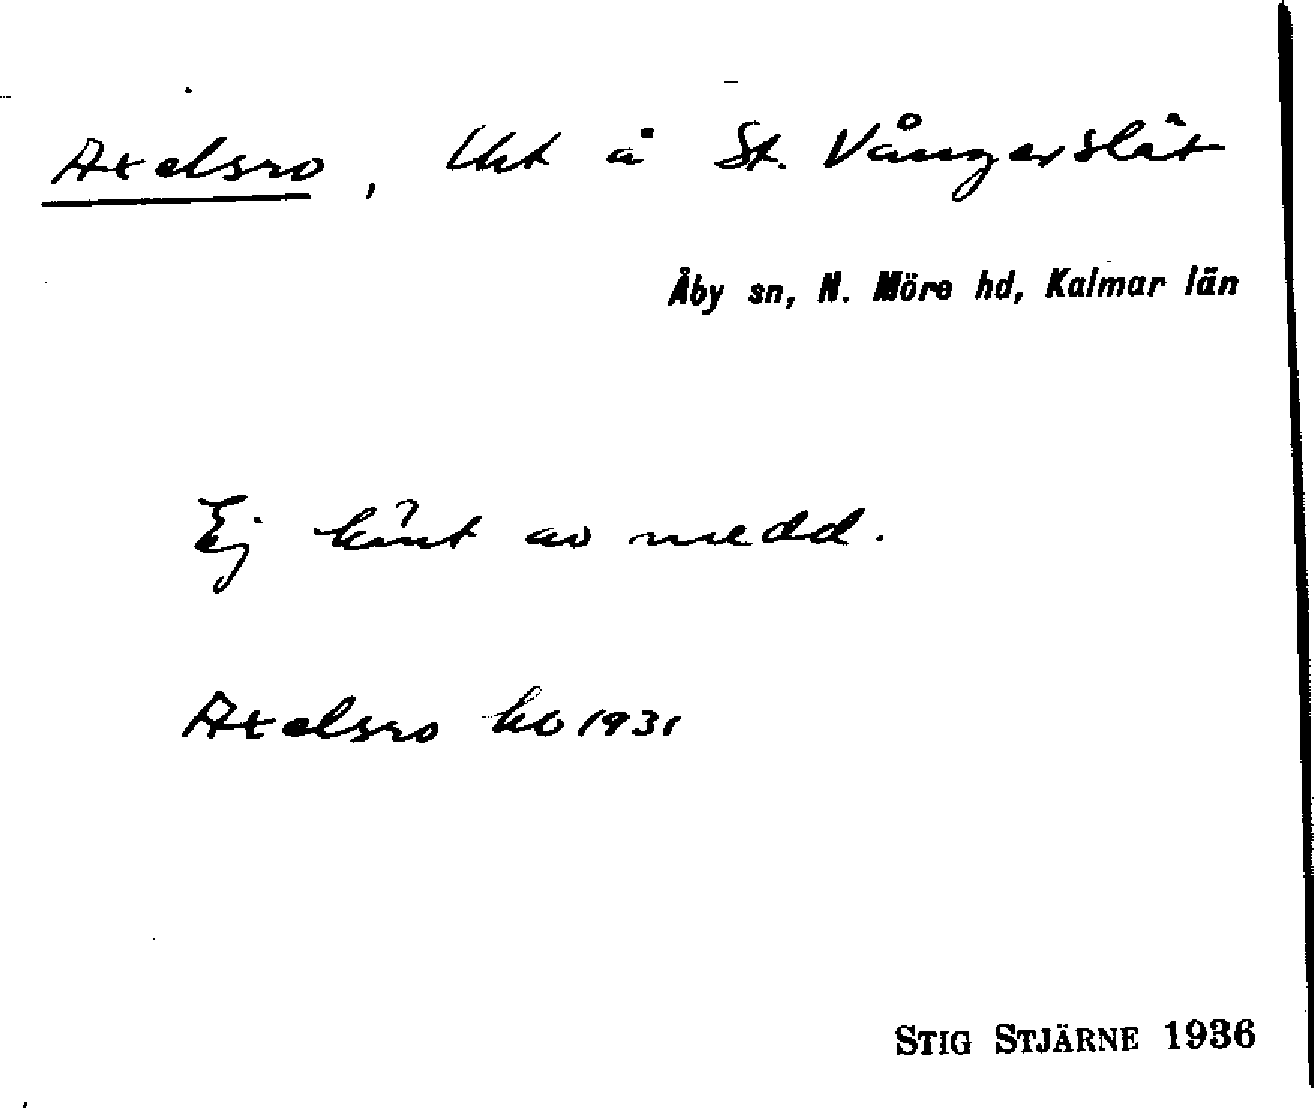 Axelsro, Uht å St. Vångerslät
Åby sn, N. Möre hd, Kalmar län
Ej känt av medd.
Axelsro ho 1931
STIG STJÄRNE 1936